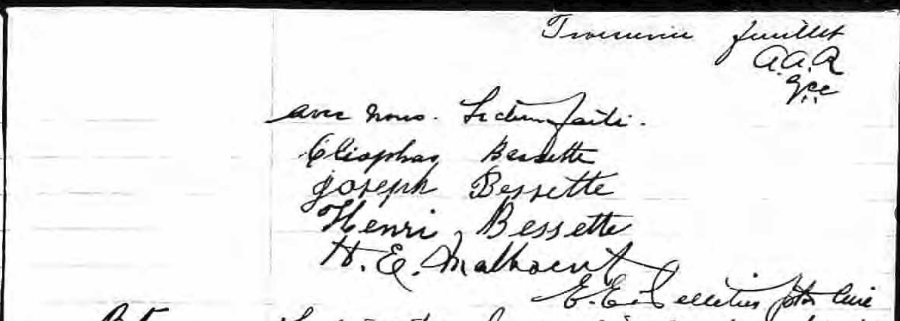 Troisième feuillet
A.A.R
avec nous. Lecture faite.
Cléophas Bessette
Joseph Bessette
Henri Bessette
H. E. Malhoent
E. E. Pelletier ptre Curé